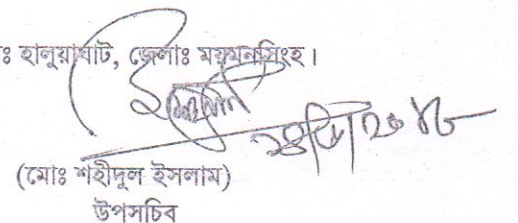 ঃ হালুয়াঘাট, জেলাঃ ময়মনসিংহ।
(মোঃ শহীদুল ইসলাম)
উপসচিব